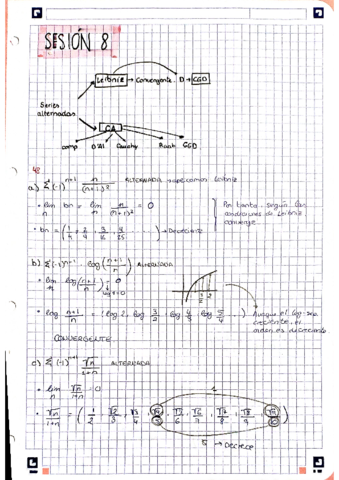 SESIÓN 8
Leibniz → Convergente → D → CGD
Series
alternadas
CA
comp D'Al Cauchy Raab CGD
48
a) Σ (-1)^{n+1} n/(n+1)² ALTERNADA Leibniz
• lim_n bn = lim_n n/(n+1)² = 0
Por tanto, según las
condiciones de Leibniz
converge.
• bn = (1/4, 2/9, 3/16, 4/25 ......) → Decreciente
b) Σ (-1)^{n+1} · log((n+1)/n) ALTERNADA
• lim_n log((n+1)/n) = 0
log 1 = 0
• log (n+1)/n = (log 2, log 3/2, log 4/3, log 5/4 ...)
Aunque el log sea
creciente, el
orden es decreciente
CONVERGENTE
c) Σ (-1)^{n+1} √n/(1+n) ALTERNADA
• lim_n √n/(1+n) = 0
• √n/(1+n) = (1/2, √2/3, √3/4, √4/5, √5/6, √6/7, √7/8, √8/9, )
→ Decrece